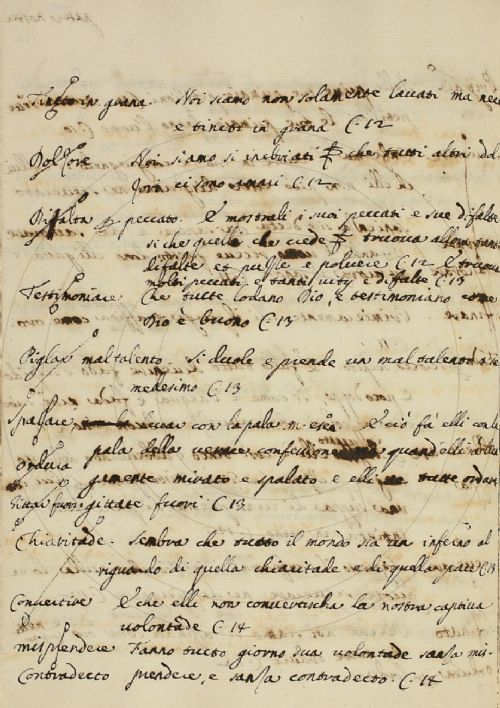 Tincto in grana. Noi siamo non solamente laccati ma
e tincti in grana C. 12
Dolzore Noi siamo si inebriati che tutti altri dol
zori ci sono amari C. 12
Difalta peccato. E mostrali i suoi peccati e sue difalte
si che quelli che crede truova allora tante
difalte et pulse e polvere C. 12 e truova
molti peccati e tanti e difalte C. 13
Testimoniare Che tutte lodano Dio, e testimoniano come
Dio è buono C. 13
Piglar mal talento. Si duole e prende un mal talento a se
medesimo C. 13
Spalare levar con la pala E ciò fa elli con la
pala della verace confessione quand'elli
Ordura gamente mirato e spalato e elli tutte ordure
Gittar fuori gittate fuori C. 13
Chiaritade. Sembra che tutto il mondo sia un inferno al
riguardo di quella chiaritade e di quella pace C. 13
Convertire E che elli non convertischa la nostra captiva
volontade C. 14
misprendere Fanno tutto giorno sua volontade sanza mis-
Contradecto prendere, e sanza contradecto. C. 14